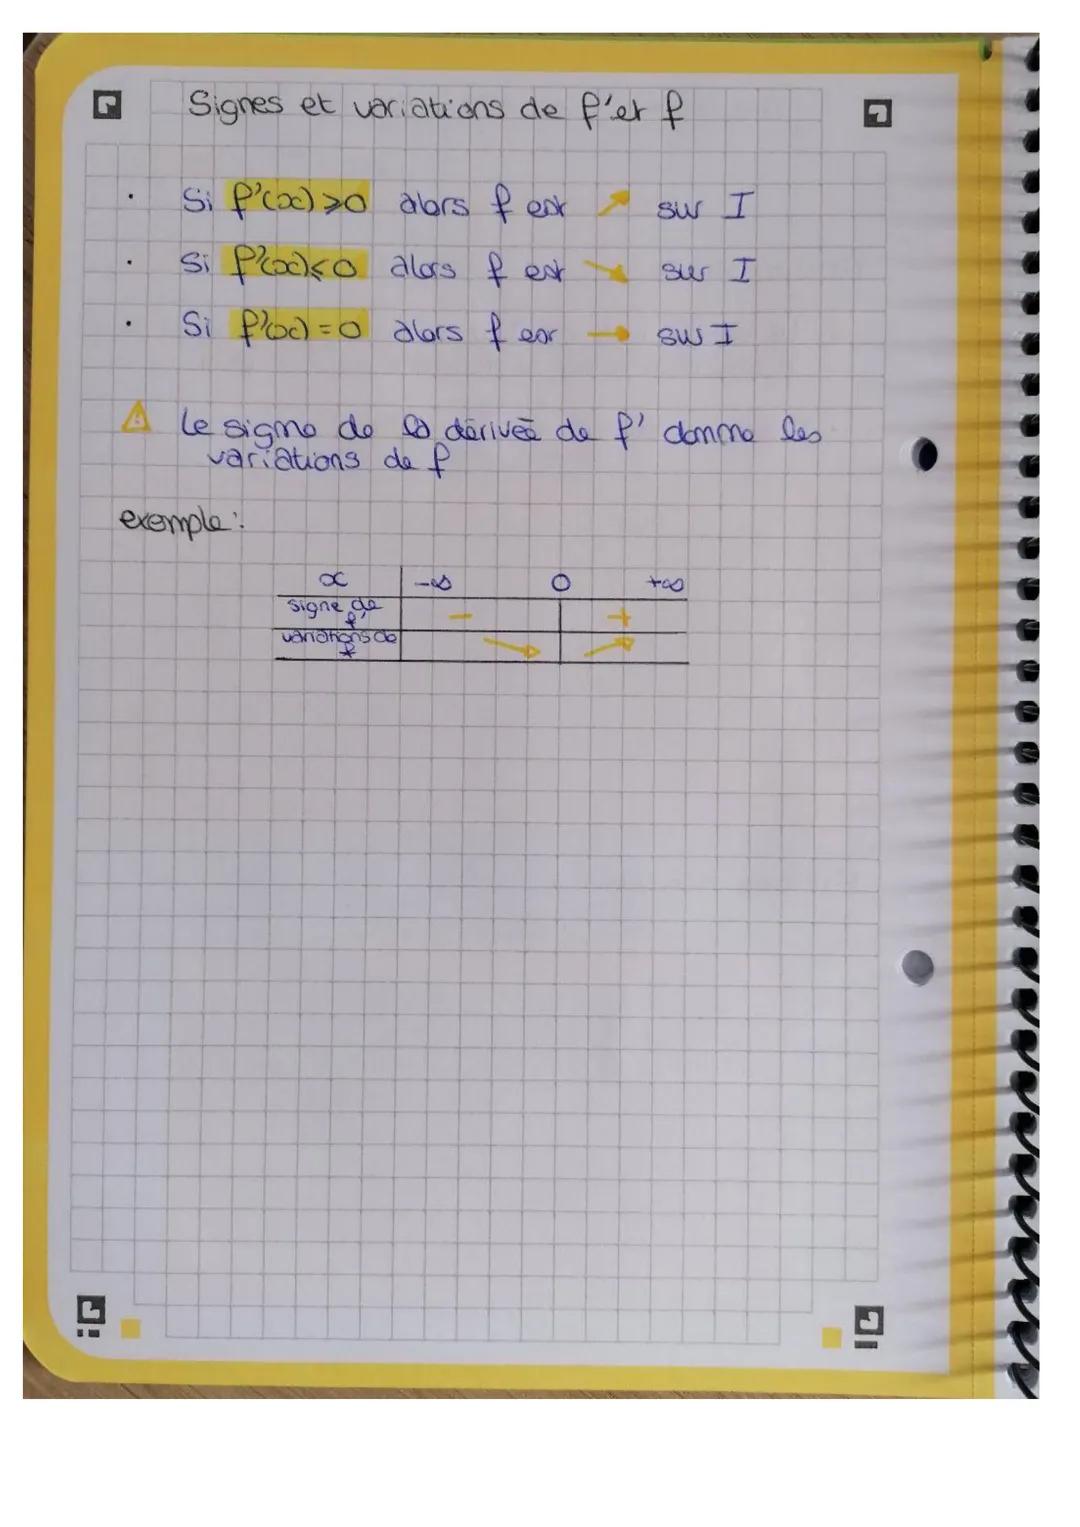 Signes et variations de f' et f
· Si f'(x) ⩾0 alors f est ↗ sur I
· Si f'(x)⩽0 alors f est ↘ sur I
· Si f'(x) = 0 alors f est → sur I
⚠ Le signe de la dérivée de f' donne les
variations de f
exemple :
x -∞ 0 +∞
signe de f' - +
variations de f ↘ ↗